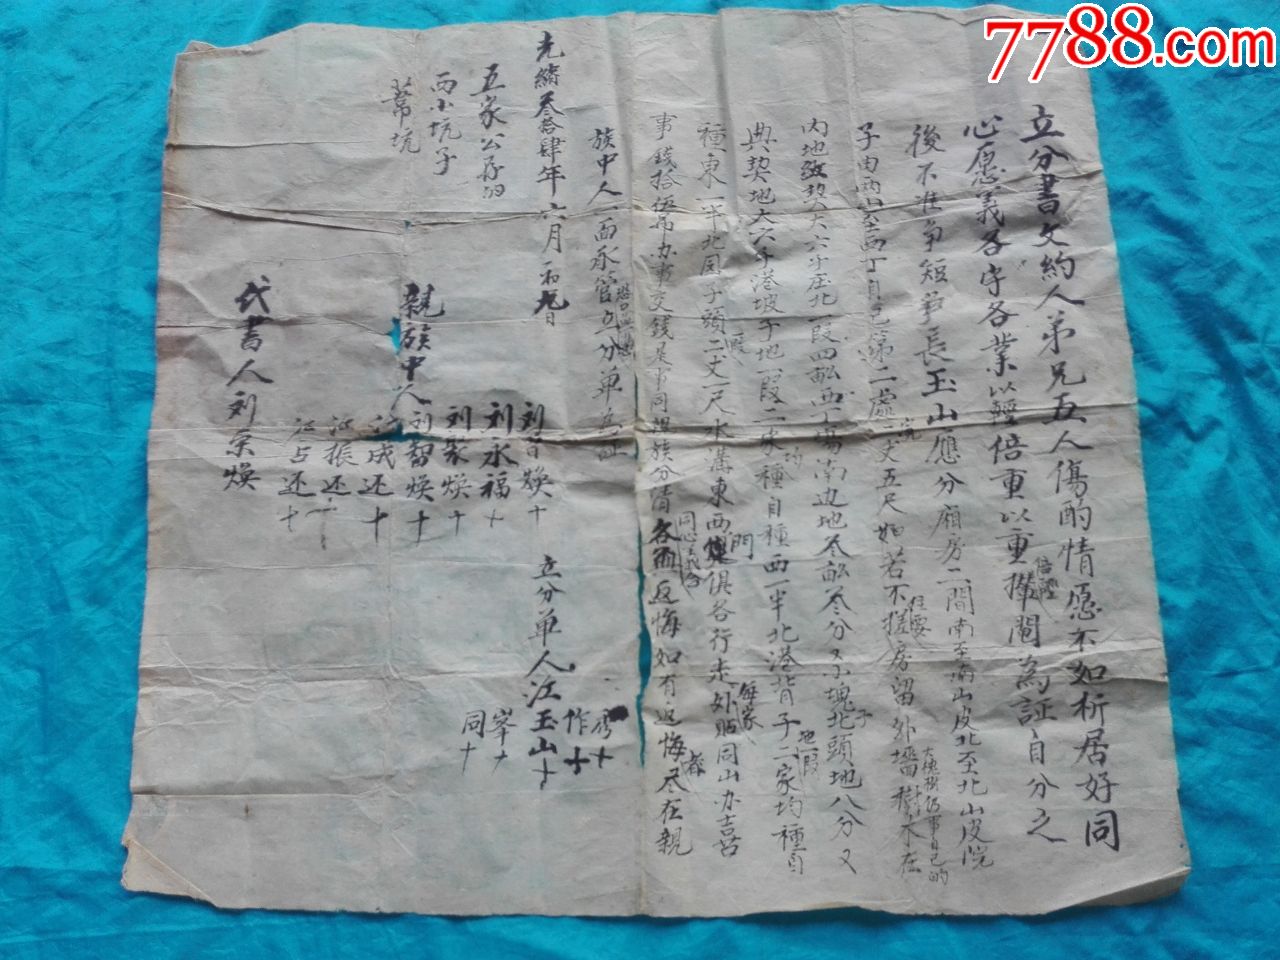 7788.com
立分書文約人弟兄五人傷酌情愿不如析居好同
心愿義各守各業以輕倍重以重攆鬮為証自分之
倍輕
後不准争短爭長玉山應分廂房二間南至南山皮北至北山皮院
大槐樹仍事自己的
子由西至西丁自己第二處一丈五尺如若不搓房留外墻樹木在
院
任要
內地契大六子庄北一段四畝西丁場南边地叁畝叁分又小塊北頭地八分又
子
典契地大六子港坡子地一段二家種自種西一半北港背子二家均種自
均
地一段
種東一半北园子頭二丈一尺水溝東西俱各行走外貼同山办喜
門
每家
事錢拾伍吊办事交錢是事同親族分清各西返悔如有返悔尽在親
同心義合
者
族中人一面承管立分單為証
恐口無憑
光緒叁拾肆年六月初九日
五家公存的
西小坑子
葦坑
親族中人
刘晋煥十
刘永福十
刘聚煥十
刘智煥十
江成还十
江振还十
江占还十
代書人刘宗煥
立分單人江玉山十
秀十
作十
峯十
同十